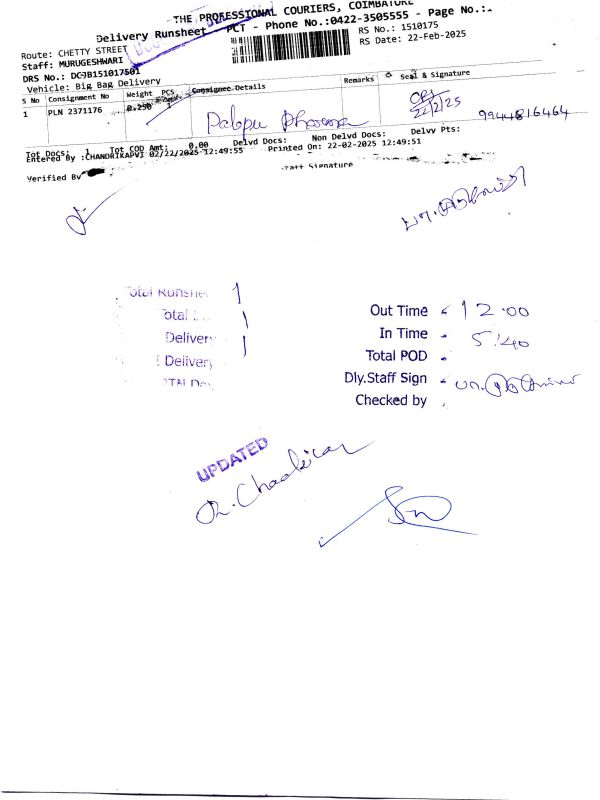 THE PROFESSIONAL COURIERS, COIMBATORE
Delivery Runsheet - PCT - Phone No.:0422-3505555 - Page No.:
Route: CHETTY STREET
RS No.: 1510175
Staff: MURUGESHWARI
RS Date: 22-Feb-2025
DRS No.:
Vehicle: Big Bag Delivery
S No Consignment No Weight PCS Consignee Details Remarks Seal & Signature
1 PLN 2371176 0.250 1
22/2/25
9944816464
Tot Docs: 1 Tot COD Amt: 0.00 Delvd Docs: Non Delvd Docs: Delvy Pts:
Entered By :CHANDRIKAPVI 02/22/2025 12:49:55 Printed On: 22-02-2025 12:49:51
Verified By Staff Signature
Total Runsheet 1
Total 1
Delivery 1
Delivery
Out Time 12.00
In Time 5:40
Total POD
Dly.Staff Sign
Checked by
UPDATED